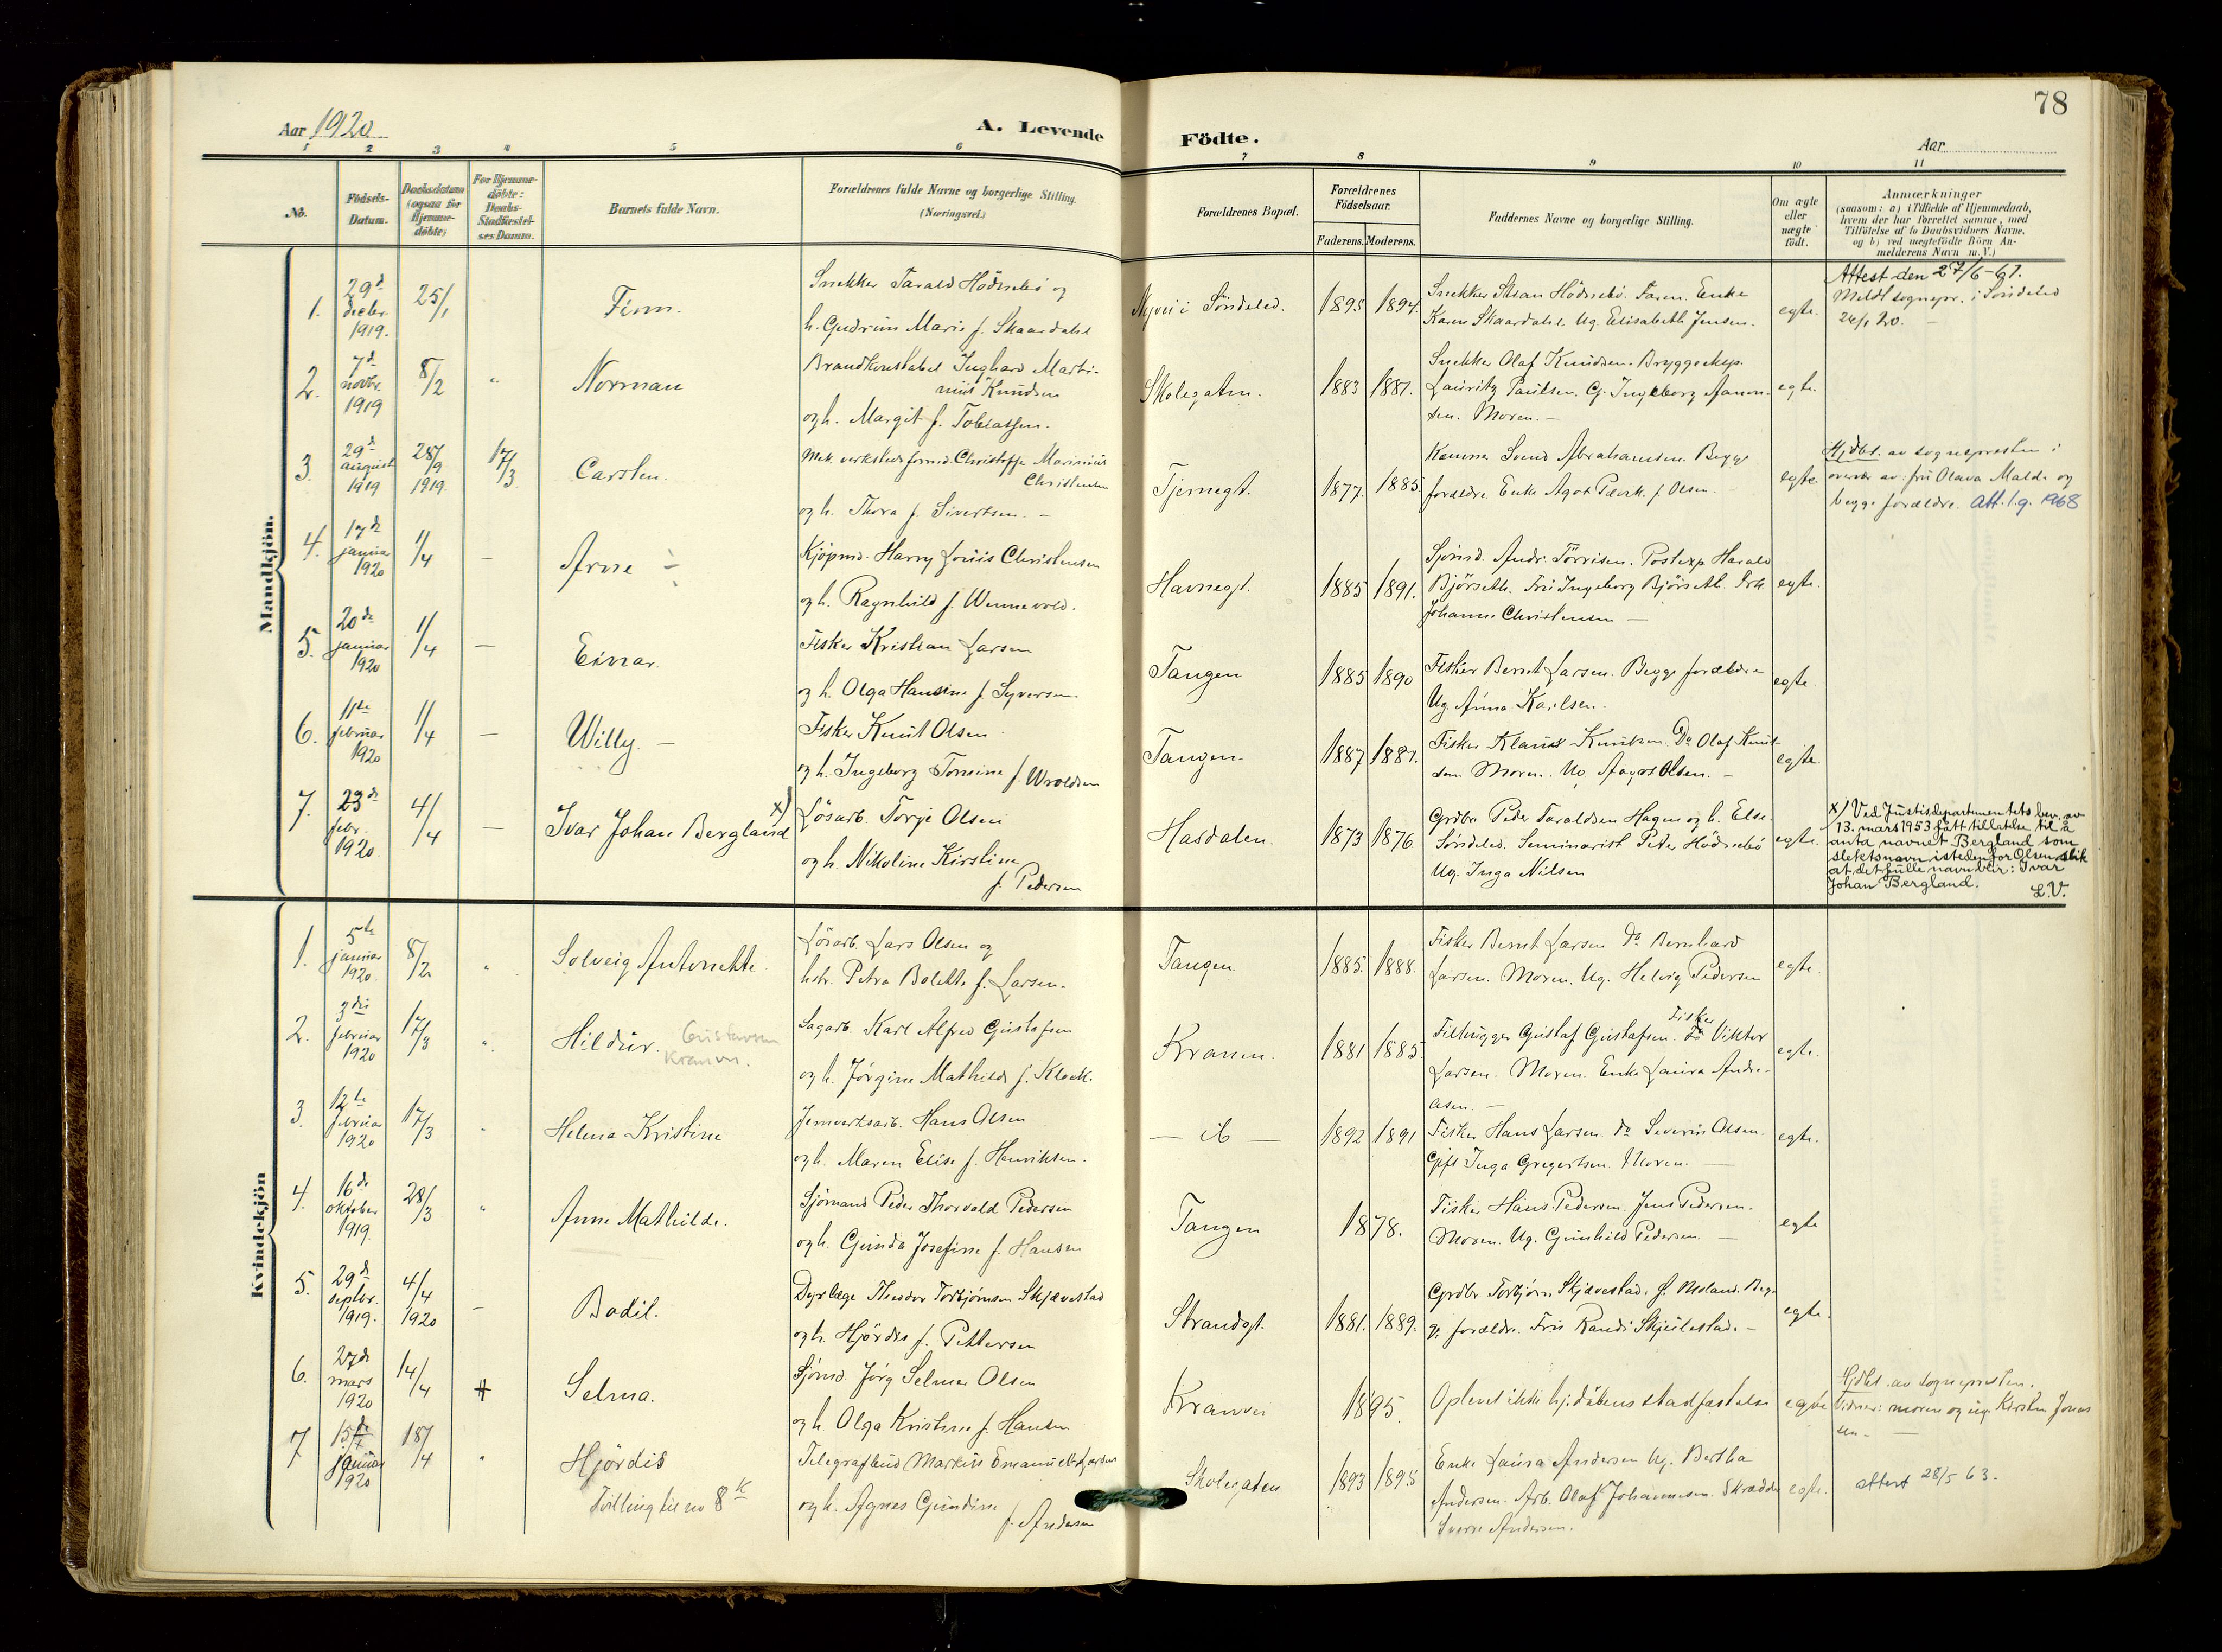 78
Aar 1920
A. Levende Födte.
Aar
1 2 3 4 5 6 7 8 9 10 11
No.
Födsels-
Datum.
Daabsdatum
(ogsaa for
Hjemme-
döbte)
For Hjemme-
döbte:
Daabs-
Stadfæstel-
ses Datum.
Barnets fulde Navn.
Forældrenes fulde Navne og borgerlige Stilling.
(Næringsvei.)
Forældrenes Bopæl.
Forældrenes
Födselsaar.
Faderens. Moderens.
Faddernes Navne og borgerlige Stilling.
Om ægte
eller
uægte
födt.
Anmærkninger
(saasom: a) i Tilfælde af Hjemmedaab,
hvem der har forrettet samme, med
Tilföielse af to Daabsvidners Navne,
og b) ved uægtefödte Börn An-
melderens Navn m. V.)
Mandkjön.
1.
29d
decbr.
1919.
25/1
Finn.
Snekker Tarald Hödnebö og
h. Gudrun Marie f. Skaardalsl
Nyvei i Söndeled.
1895 1894.
Snekker Stian Hödnebö. Faren. Enke
Karen Skaardalsl. Ug. Elisabeth Jensen.
egte.
Attest den 27/6-61.
Meldt sognepr. i Söndeled
24/1 20.
2.
7d
novbr.
1919
8/2
"
Norman
Brandkonstabel Inghard Marti-
nius Knudsen
og h. Margit f. Tobiassen.
Skolegaten.
1883 1881.
Snekker Olaf Knudsen. Bryggeeksp.
Lauritz Paulsen. G. Ingeborg Aanon-
sen. Moren. —
egte.
3.
29d
august
1919
28/9
1919.
17/3
Carsten.
Mek. verkstedsformd. Christoffer Marinius
Christensen
og h. Thora f. Sivertsen. —
Tjennegt.
1877. 1885
Svend Abrahamsen. Begge
forældre. Enke Agot f. Olsen.
egte.
Hjdbt. av sognepresten i
overvær av: fru Olava Malde og
begge forældre. Att. 1.9. 1968
4.
17de
januar
1920
1/4
—
Arne —
Kjöpmd. Harry Louis Christensen
og h. Ragnhild f. Wennevold.
Havnegt.
1885 1891.
Sjömd. Andr. Törrisen. Postexp. Harald
Björseth. Fru Ingeborg Björseth. Frk.
Johanne Christensen —
egte.
5.
20de
januar
1920
1/4
—
Einar.
Fisker Kristian Larsen
og h. Olga Hansine f. Syversen
Tangen
1885 1890
Fisker Bernt Larsen. Begge forældre
Ug. Anna Karlsen.
egte
6.
11te
februar
1920
1/4
—
Willy. —
Fisker Knut Olsen
og h. Ingeborg Tomine f. Wroldsen
Tangen
1887 1887.
Fisker Klaus Knutsen. Do Olaf Knut-
sen. Moren. Ug. Aagot Olsen. —
egte.
7.
23de
febr.
1920.
4/4
—
Ivar Johan Bergland x)
Lösarb. Torje Olsen
og h. Nikoline Kirstine
f. Pedersen
Hasdalen.
1873 1876.
Grdbr. Peder Taraldsen Hagen og h. Else
Söndeled. Seminarist Peter Hödnebö
Ug. Inga Nilsen
egte.
x) Ved Justisdepartementets bev. av
13. mars 1953 fått tillatelse til å
anta navnet Bergland som
slektsnavn istedenfor Olsen, slik
at det fulle navn blir: Ivar
Johan Bergland.
L.V.
Kvindekjön
1.
5te
januar
1920.
8/2
"
Solveig Antonette.
Lösarb. Lars Olsen og
hstr. Petra Bolette f. Larsen.
Tangen.
1885. 1888.
Fisker Bernt Larsen Do Bernhard
Larsen. Moren. Ug. Helvig Pedersen
egte.
2.
3die
februar
1920
17/3
"
Hildur. Gustavsen
Kranen.
Sagarb. Karl Alfred Gustafsen
og h. Jörgine Mathilde f. Klock.
Kranen.
1881 1885
Filhugger Gustaf Gustafsen. Fisker Viktor
Larsen. Moren. Enke Laura Andre-
asen. —
egte.
3.
12te
februar
1920
17/3
"
Helena Kristine
Jernverksarb. Hans Olsen
og h. Maren Elise f. Henriksen.
— ib —
1892 1891
Fisker Hans Larsen. do Severin Olsen.
Gift Inga Gregertsen. Moren. —
egte.
4.
16de
oktober
1919.
28/3
"
Anne Mathilde.
Sjömand Peder Thorvald Pedersen
og h. Gunda Josefine f. Hansen
Tangen
1878.
Fisker Hans Pedersen. Jens Pedersen.
Moren. Ug. Gunhild Pedersen. —
egte
5.
29de
septbr.
1919.
4/4
1920
—
Bodil.
Dyrlæge Theodor Torbjörnsen Skjævestad
og h. Hjördis f. Pettersen
Strandgt.
1881. 1889.
Grdbr. Torbjörn Skjævestad. Beg-
ge forældre. Fru Randi
egte.
6.
27de
mars
1920
14/4
Selma.
Sjömd. Jörg Selmer Olsen
og h. Olga Kristine f. Hansen
Kranen
1895.
Oplevet ikke hj.daabens stadfæstelse
egte
Hjdbt. av sognepresten.
Vidner: moren og ug. Kirsten Jonas
sen. —
7
15de
januar
1920
18/4
"
Hjördis
Tvilling til no 8
Telegrafbud Markus Emanuel Larsen
og h. Agnes Gundine
f. Andersen
Skolegaten
1893 1895
Enke Laura Andersen Ug. Bertha
Andersen. Arb. Olaf Johannesen. Skrædder
Sverre Andersen.
egte.
attest 28/5 63.